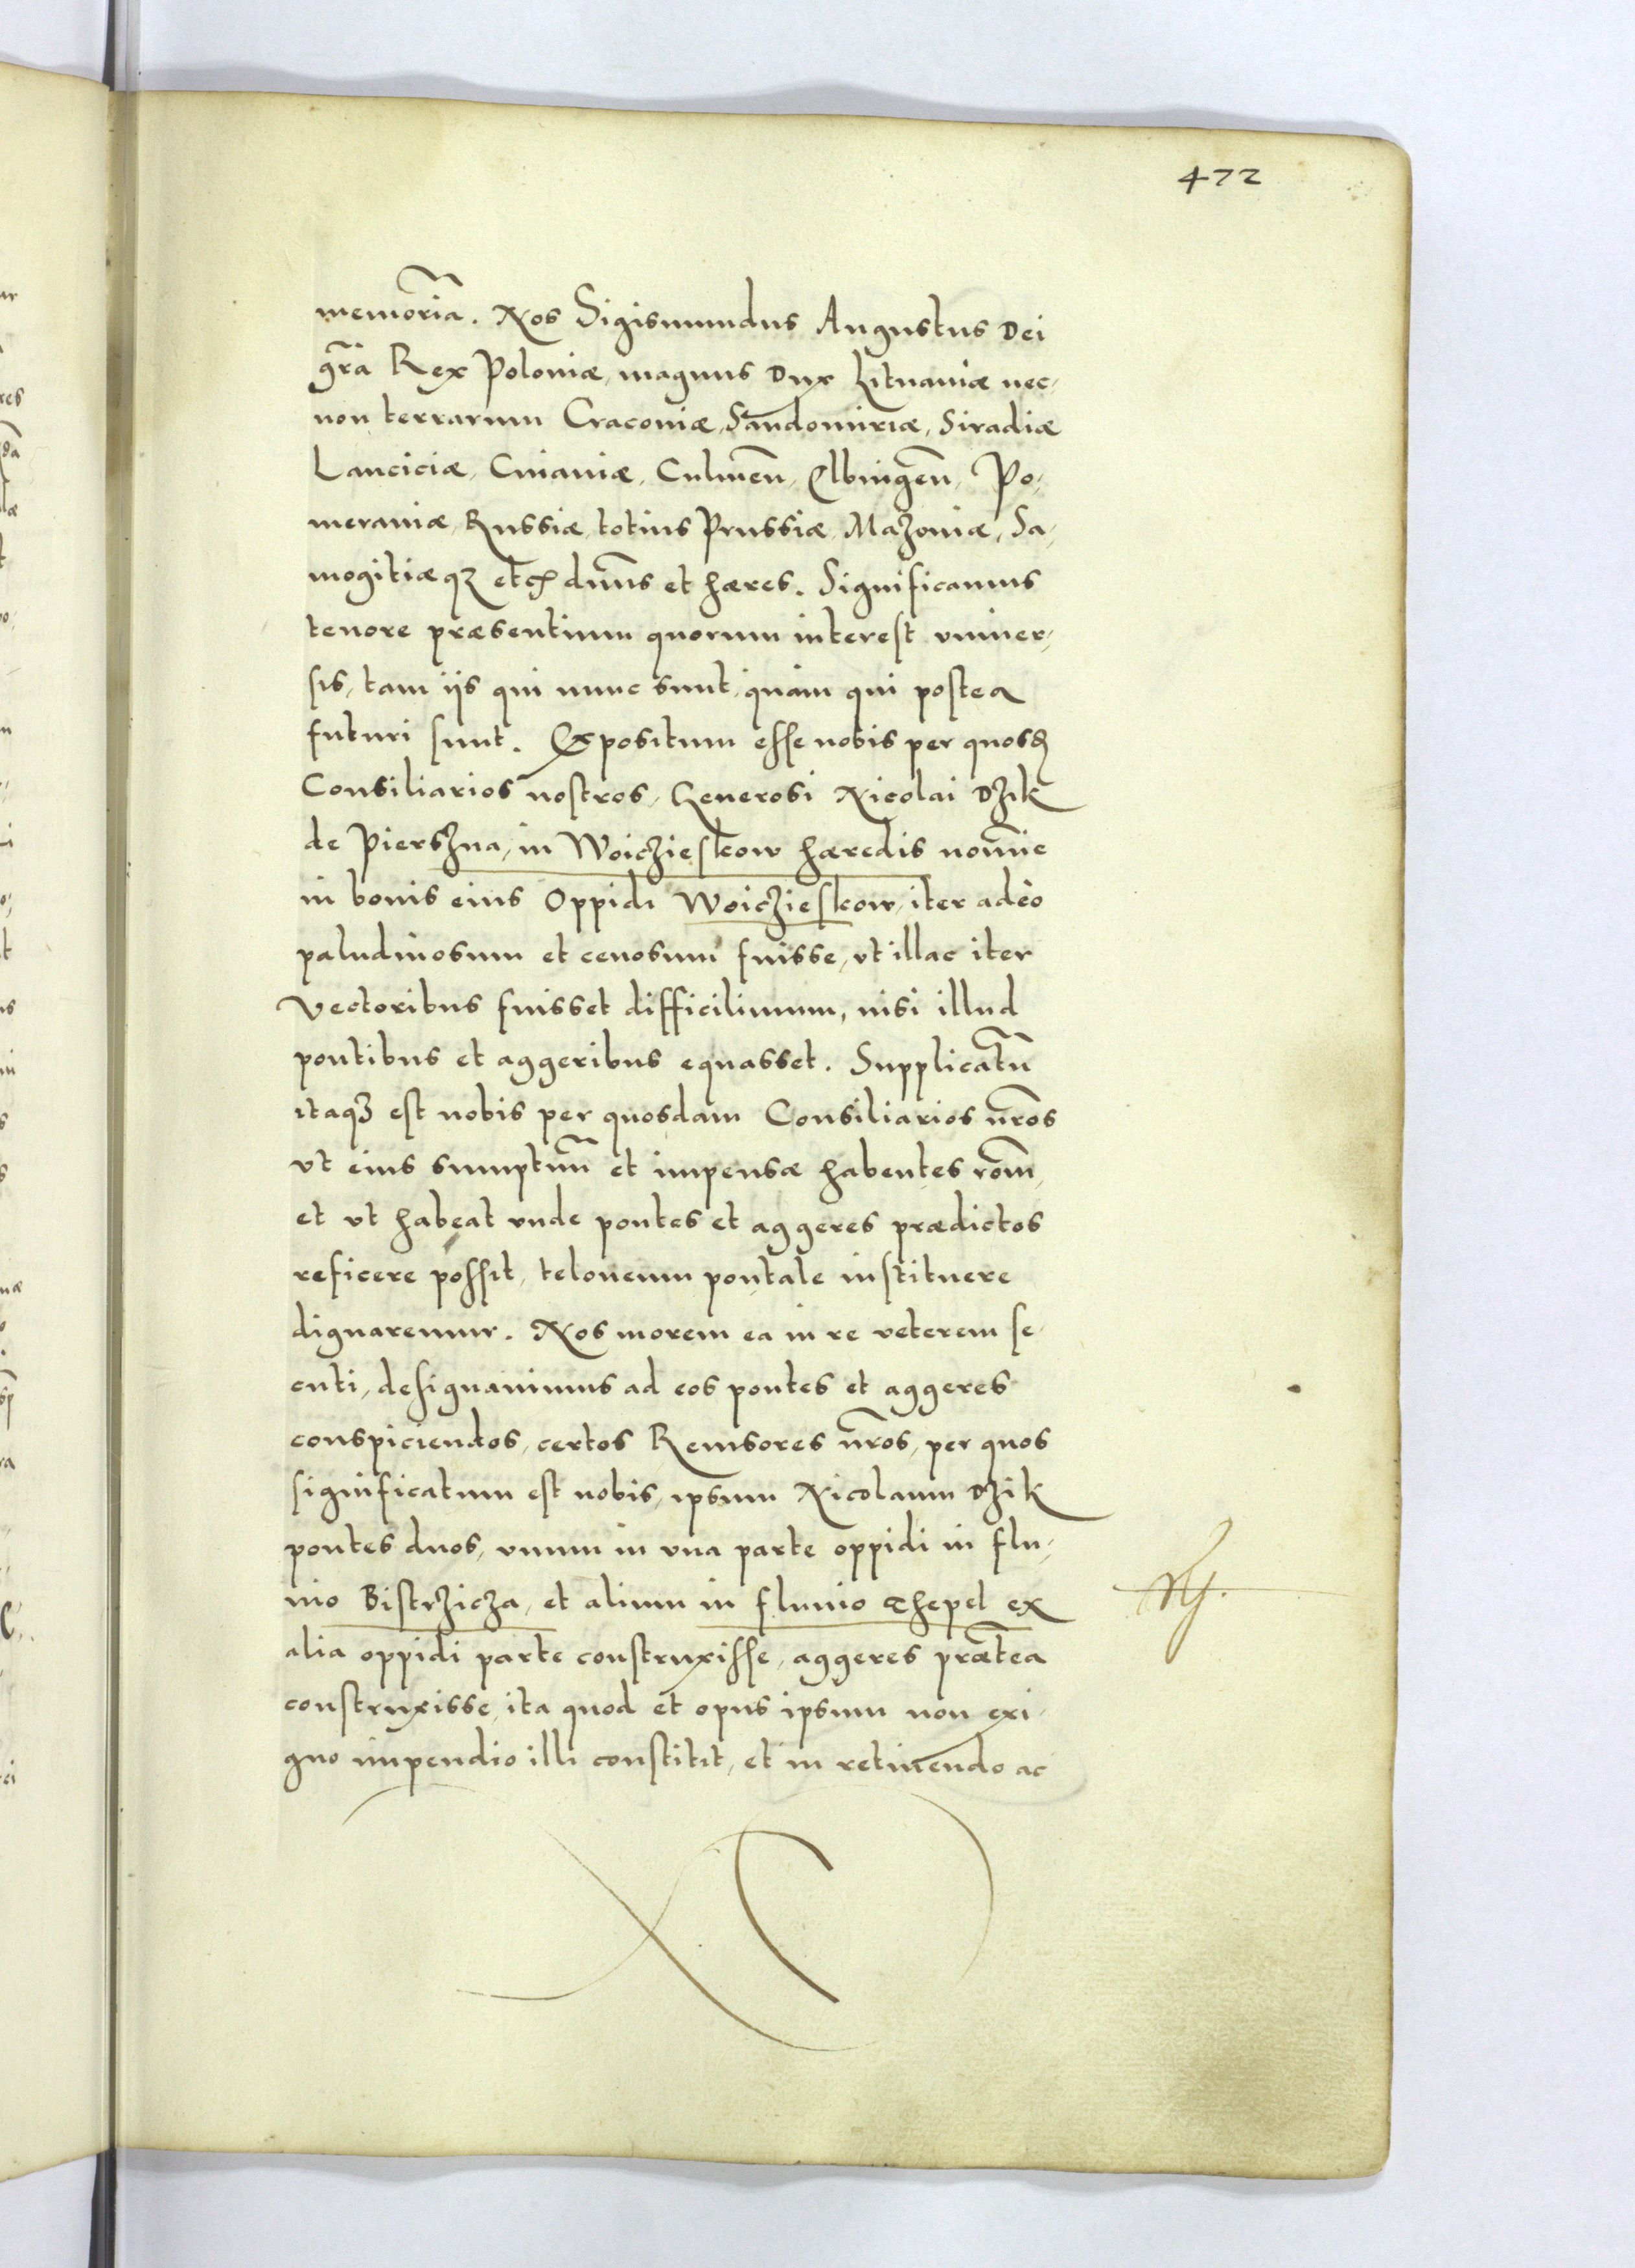 472
memoria͂. Nos Sigismundus Augustus Dei
gr͂a Rex Poloniæ, magnus Dux Lituaniæ nec,
non terrarum Cracoviæ, Sandomiriæ, Siradiæ
Lanciciæ, Cuiaviæ, Culmen͂, Elbingen͂, Po,
meraniæ, Russiæ, totius Prussiæ, Mazoviæ, Sa,
mogitiæqꝫ etc͂ dn͂us et hæres. Significamus
tenore præsentium quorum interest vniver,
sis, tam ijs qui nunc sunt, quàm qui postea
futuri sunt. Expositum esse nobis per quosd͂
Consiliarios nostros, Generosi Nicolai Dzik
de Pierszna, in Woiczieskow hæredis nom͂ie
in bonis eius Oppidi Woiczieskow, iter adeò
paludinosum et cenosum fuisse, vt illac iter
vectoribus fuisset difficilimum, nisi illud
pontibus et aggeribus equasset. Supplicatu͂
itaqꝫ est nobis per quosdam Consiliarios nr͂os
vt eius sumptuu͂ et impensæ habentes ro͂m,
et vt habeat vnde pontes et aggeres prædictos
reficere possit, teloneum pontale instituere
dignaremur. Nos morem ea in re veterem se,
cuti, designavimus ad eos pontes et aggeres
conspiciendos, certos Revisores nr͂os, per quos
significatum est nobis, ipsum Nicolaum Dzik
pontes duos, vnum in vna parte oppidi in flu,
vio Bistrzicza, et alium in fluvio Thepel ex
alia oppidi parte construxisse, aggeres præt͂ea
construxisse, ita quod et opus ipsum non exi,
guo impendio illi constitit, et in retinendo ac